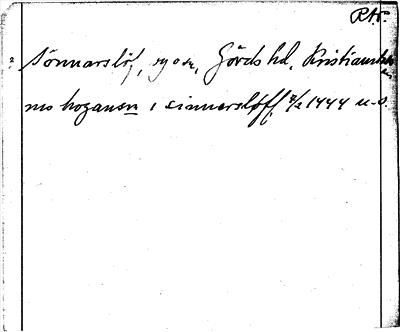 RAp.
2 Sönnarslöf, sg o sn, Gärds hd, Kristianstads
l.
nes hoganen i sinnersløff 7/2 1444 u. s.